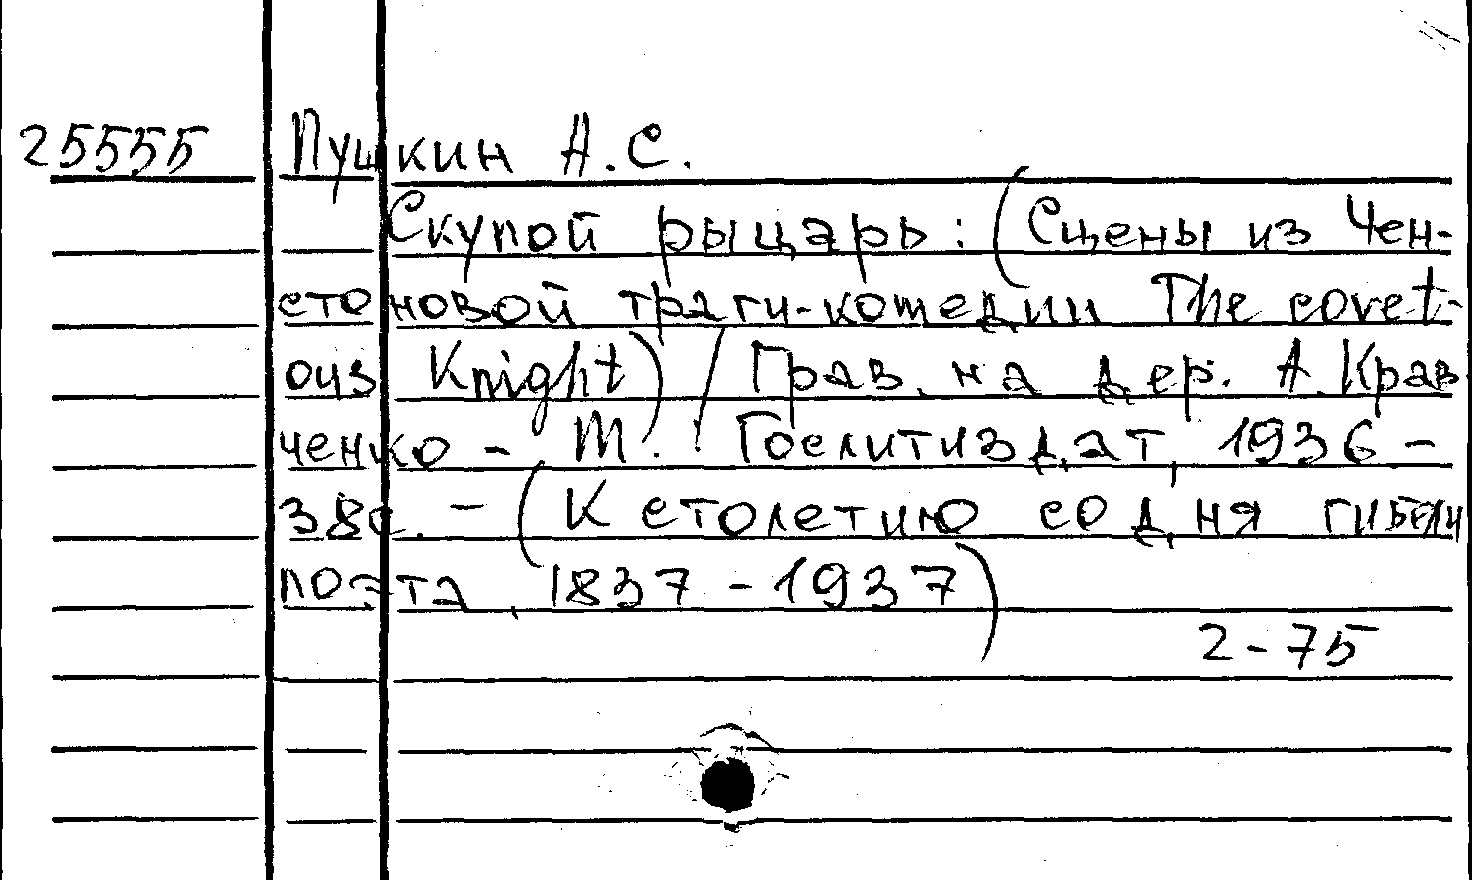 25555 Пушкин А.С.
Скупой рыцарь: (Сцены из Чен-
стоновой траги-комедии The covet-
ous Knight) / Грав. на дер. А. Крав
ченко - М.: Гослитиздат, 1936 -
38с. - (К столетию со дня гибели
поэта, 1837 - 1937)
2-75